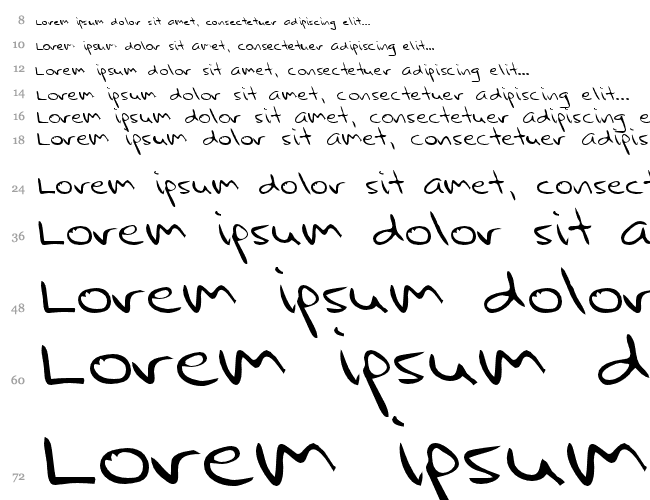 8 Lorem ipsum dolor sit amet, consectetuer adipiscing elit...
10 Lorem ipsum dolor sit amet, consectetuer adipiscing elit...
12 Lorem ipsum dolor sit amet, consectetuer adipiscing elit...
14 Lorem ipsum dolor sit amet, consectetuer adipiscing elit...
16 Lorem ipsum dolor sit amet, consectetuer adipiscing e
18 Lorem ipsum dolor sit amet, consectetuer adipis
24 Lorem ipsum dolor sit amet, consect
36 Lorem ipsum dolor sit a
48 Lorem ipsum dolor
60 Lorem ipsum d
72 Lorem ipsum